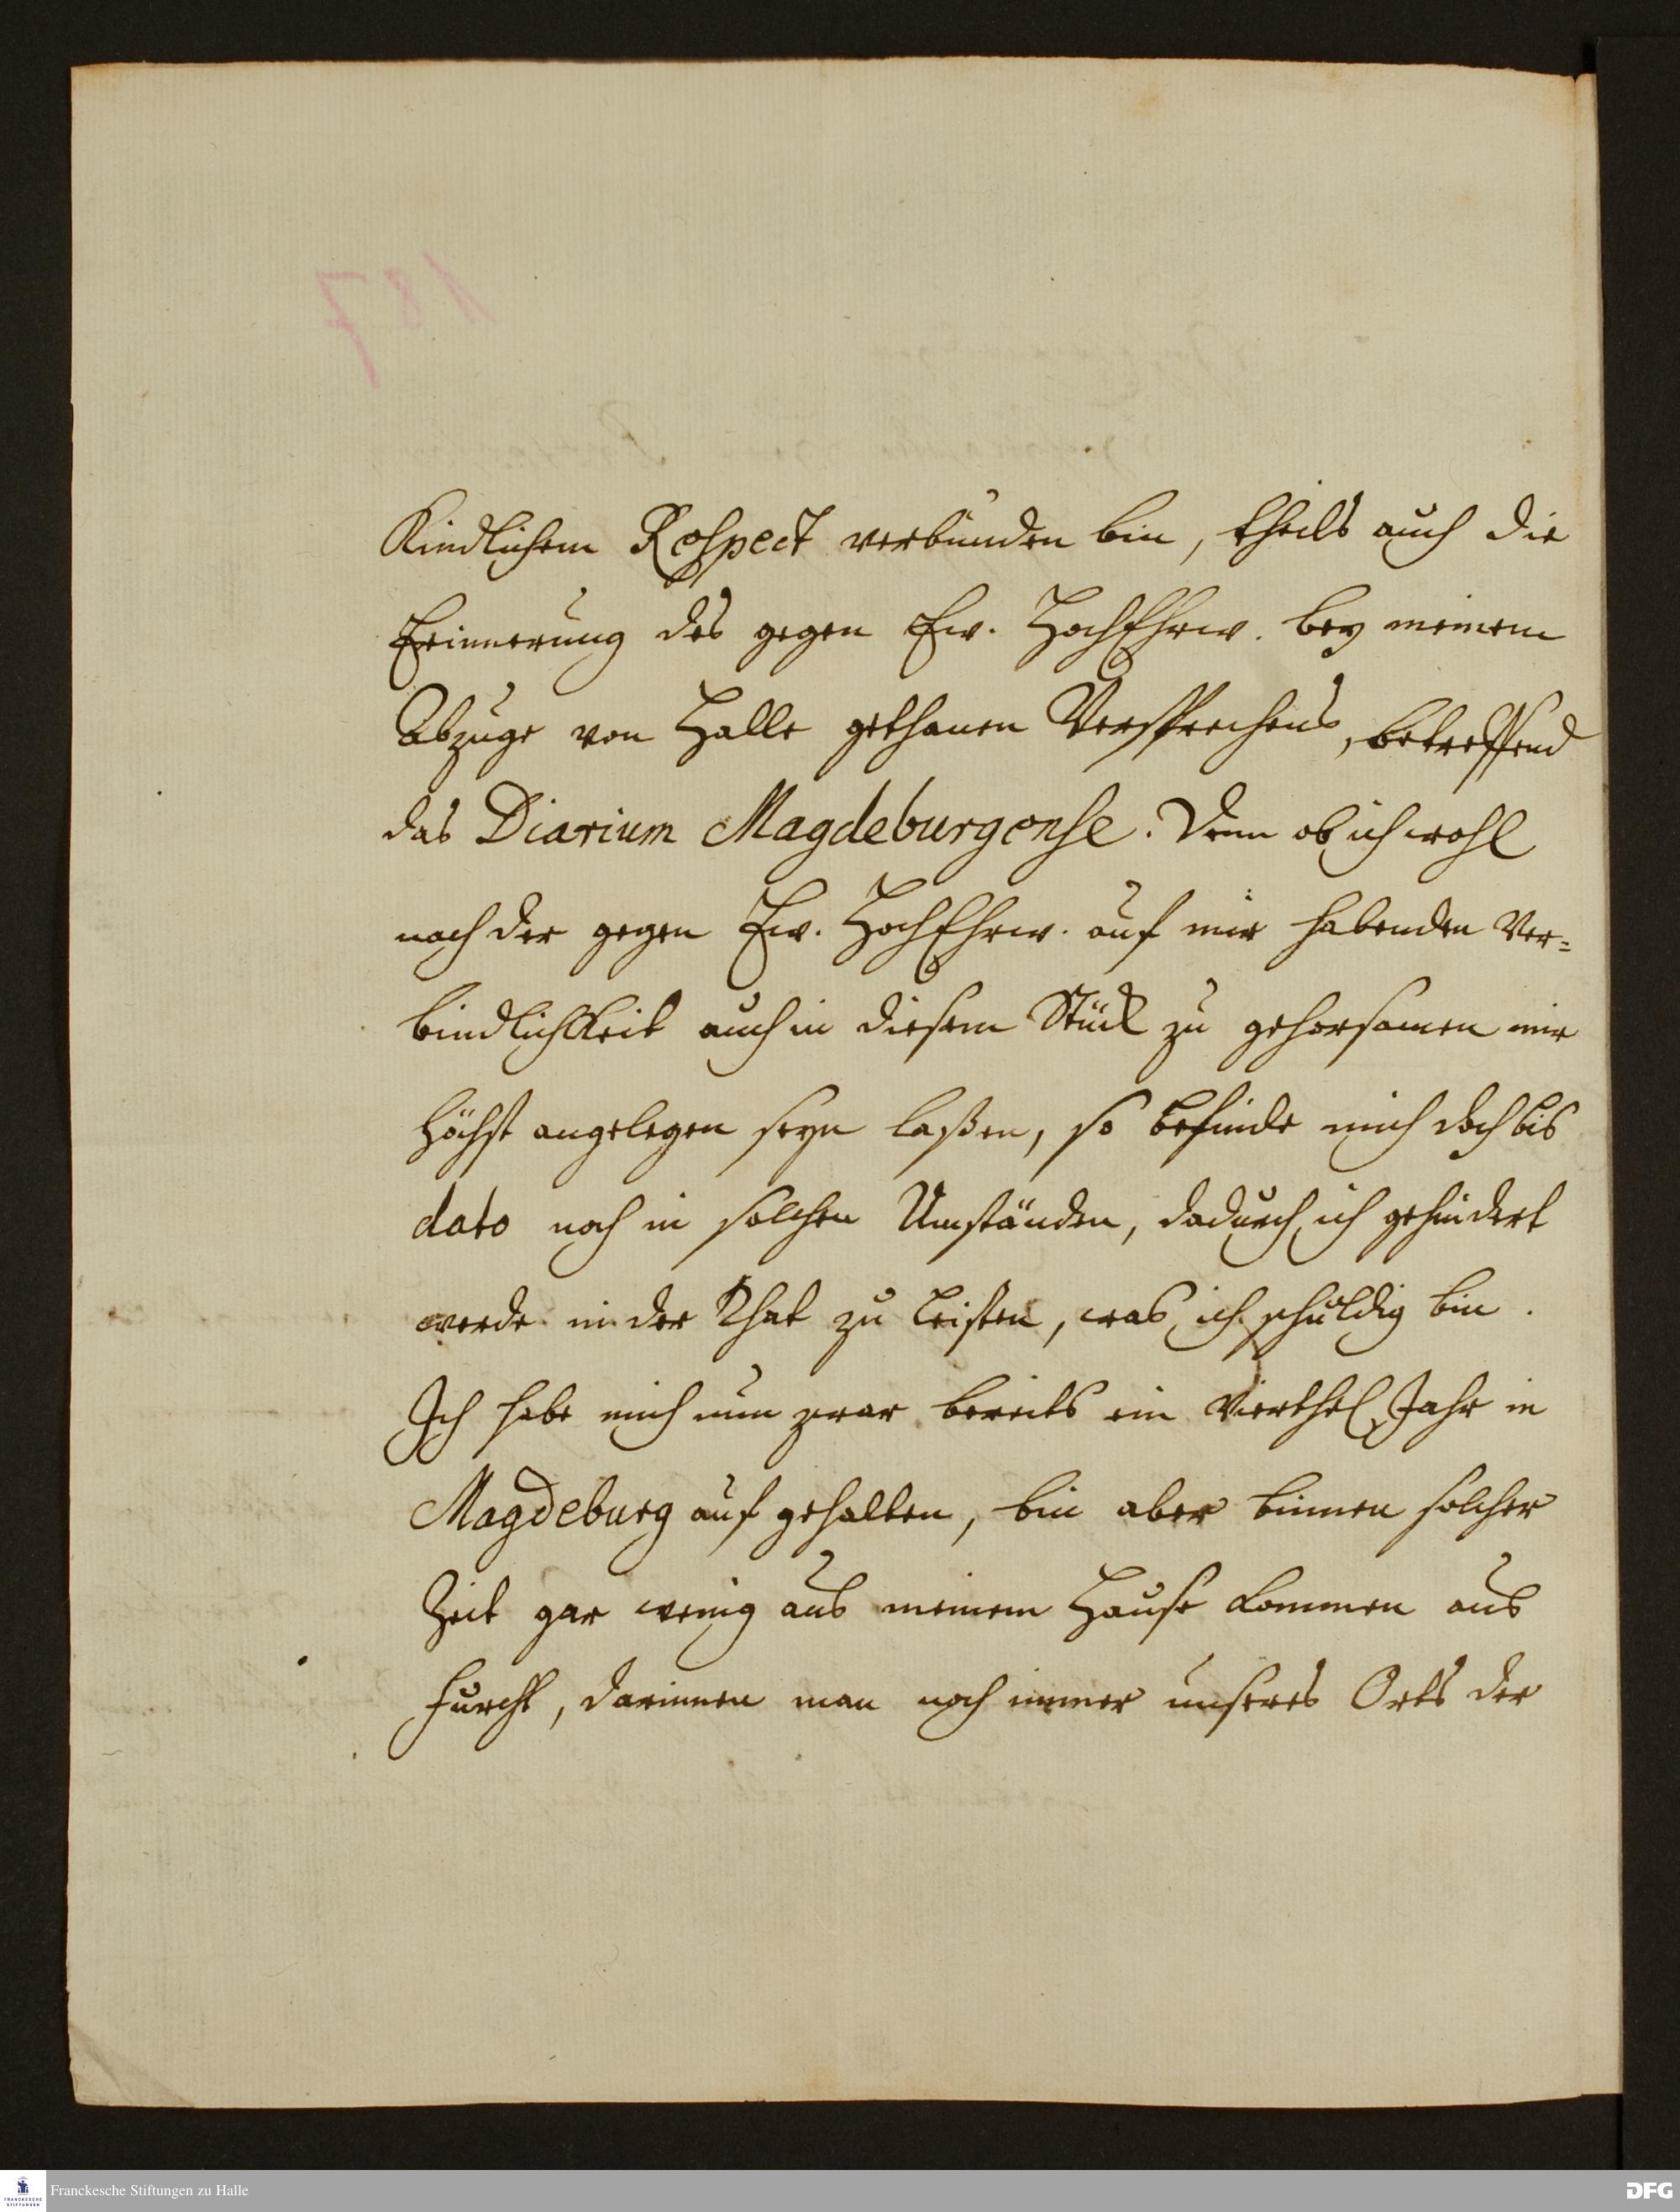 Kindlichem Respect verbunden bin, theils auch die
Erinnerung des gegen Ew. HochEhrw. bey meinem
Abzuge von Halle gethanen Versprechens, betreffend
das Diarium Magdeburgense. Denn ob ich wohl
nach der gegen Ew. HochEhrw. auf mir habenden Ver=
bindlichkeit auch in diesem Stück zu gehorsamen mir
höchst angelegen seyn laßen, so befinde mich doch bis
dato noch in solchen Umständen, dadurch ich gehindert
werde in der That zu leisten, was ich schuldig bin.
Ich habe mich nun zwar bereits ein Vierthel Jahr in
Magdeburg auf gehalten, bin aber binnen solcher
Zeit gar wenig aus meinem Hause kommen aus
Furcht, darinnen man noch immer unseres Orts der
187
Franckesche Stiftungen zu Halle
FRANCKESCHE STIFTUNGEN
DFG